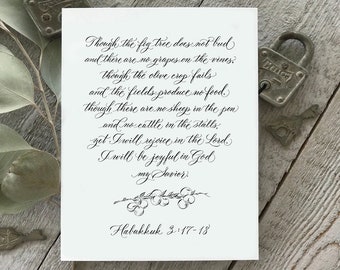 Though the fig tree does not bud
and there are no grapes on the vines,
though the olive crop fails
and the fields produce no food
though there are no sheep in the pen
and no cattle in the stalls,
yet I will rejoice in the Lord
I will be joyful in God
my Savior.
Habakkuk 3:17-18